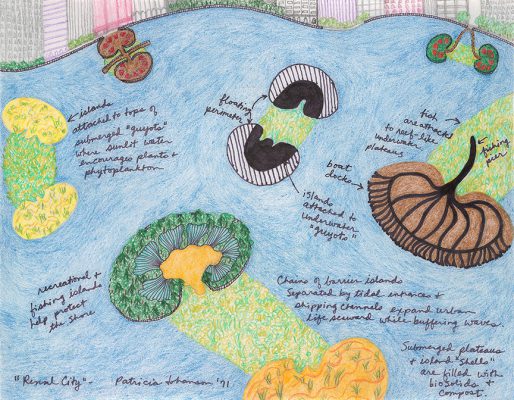 islands
attached to tops of
submerged "guyots"
where sunlit water
encourages plants +
phytoplankton
floating
perimeter
fish
are attracted
to reef-like
underwater
plateaus
fishing
pier
boat
docks
islands
attached to
underwater
"guyots"
recreational +
fishing islands
help protect
the shore
Chains of barrier islands
separated by tidal entrances +
shipping channels expand urban
life seaward while buffering waves.
Submerged plateaus
+ island "shells"
are filled with
biosolids +
compost.
"Renal City" - Patricia Johanson '71